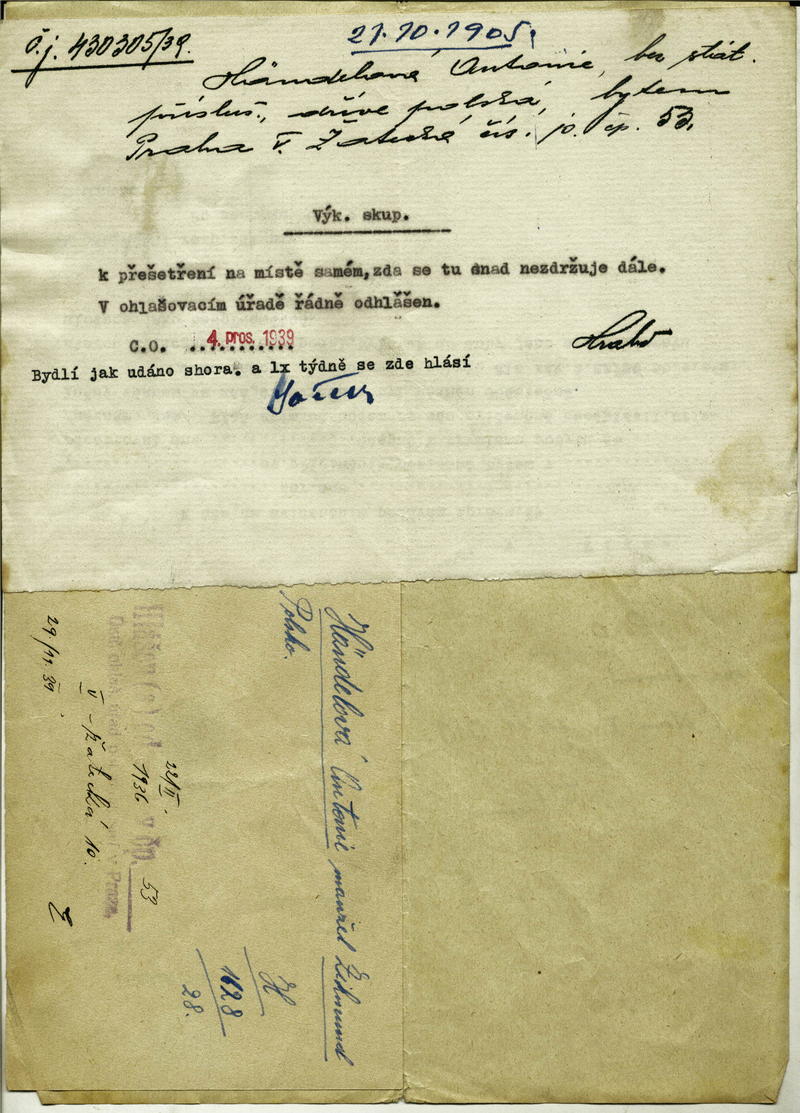 č.j. 430305/39.
21.10.1905.
Händelová Antonie, bez stát.
přísluš., dříve polská, bytem
Praha V. Žatecká čís. 10. čp. 53.
Výk. skup.
k přešetření na místě samém, zda se tu snad nezdržuje dále.
V ohlašovacím úřadě řádně odhlášen.
C.O. 4. pros. 1939
Bydlí jak udáno shora. a 1x týdně se zde hlásí
Händelová Antonie manžel Zikmund
Polsko.
H
1628
28.
22/II.
1936
v čp. 53
v Praze,
V - Žatecká 10.
29./11. 39